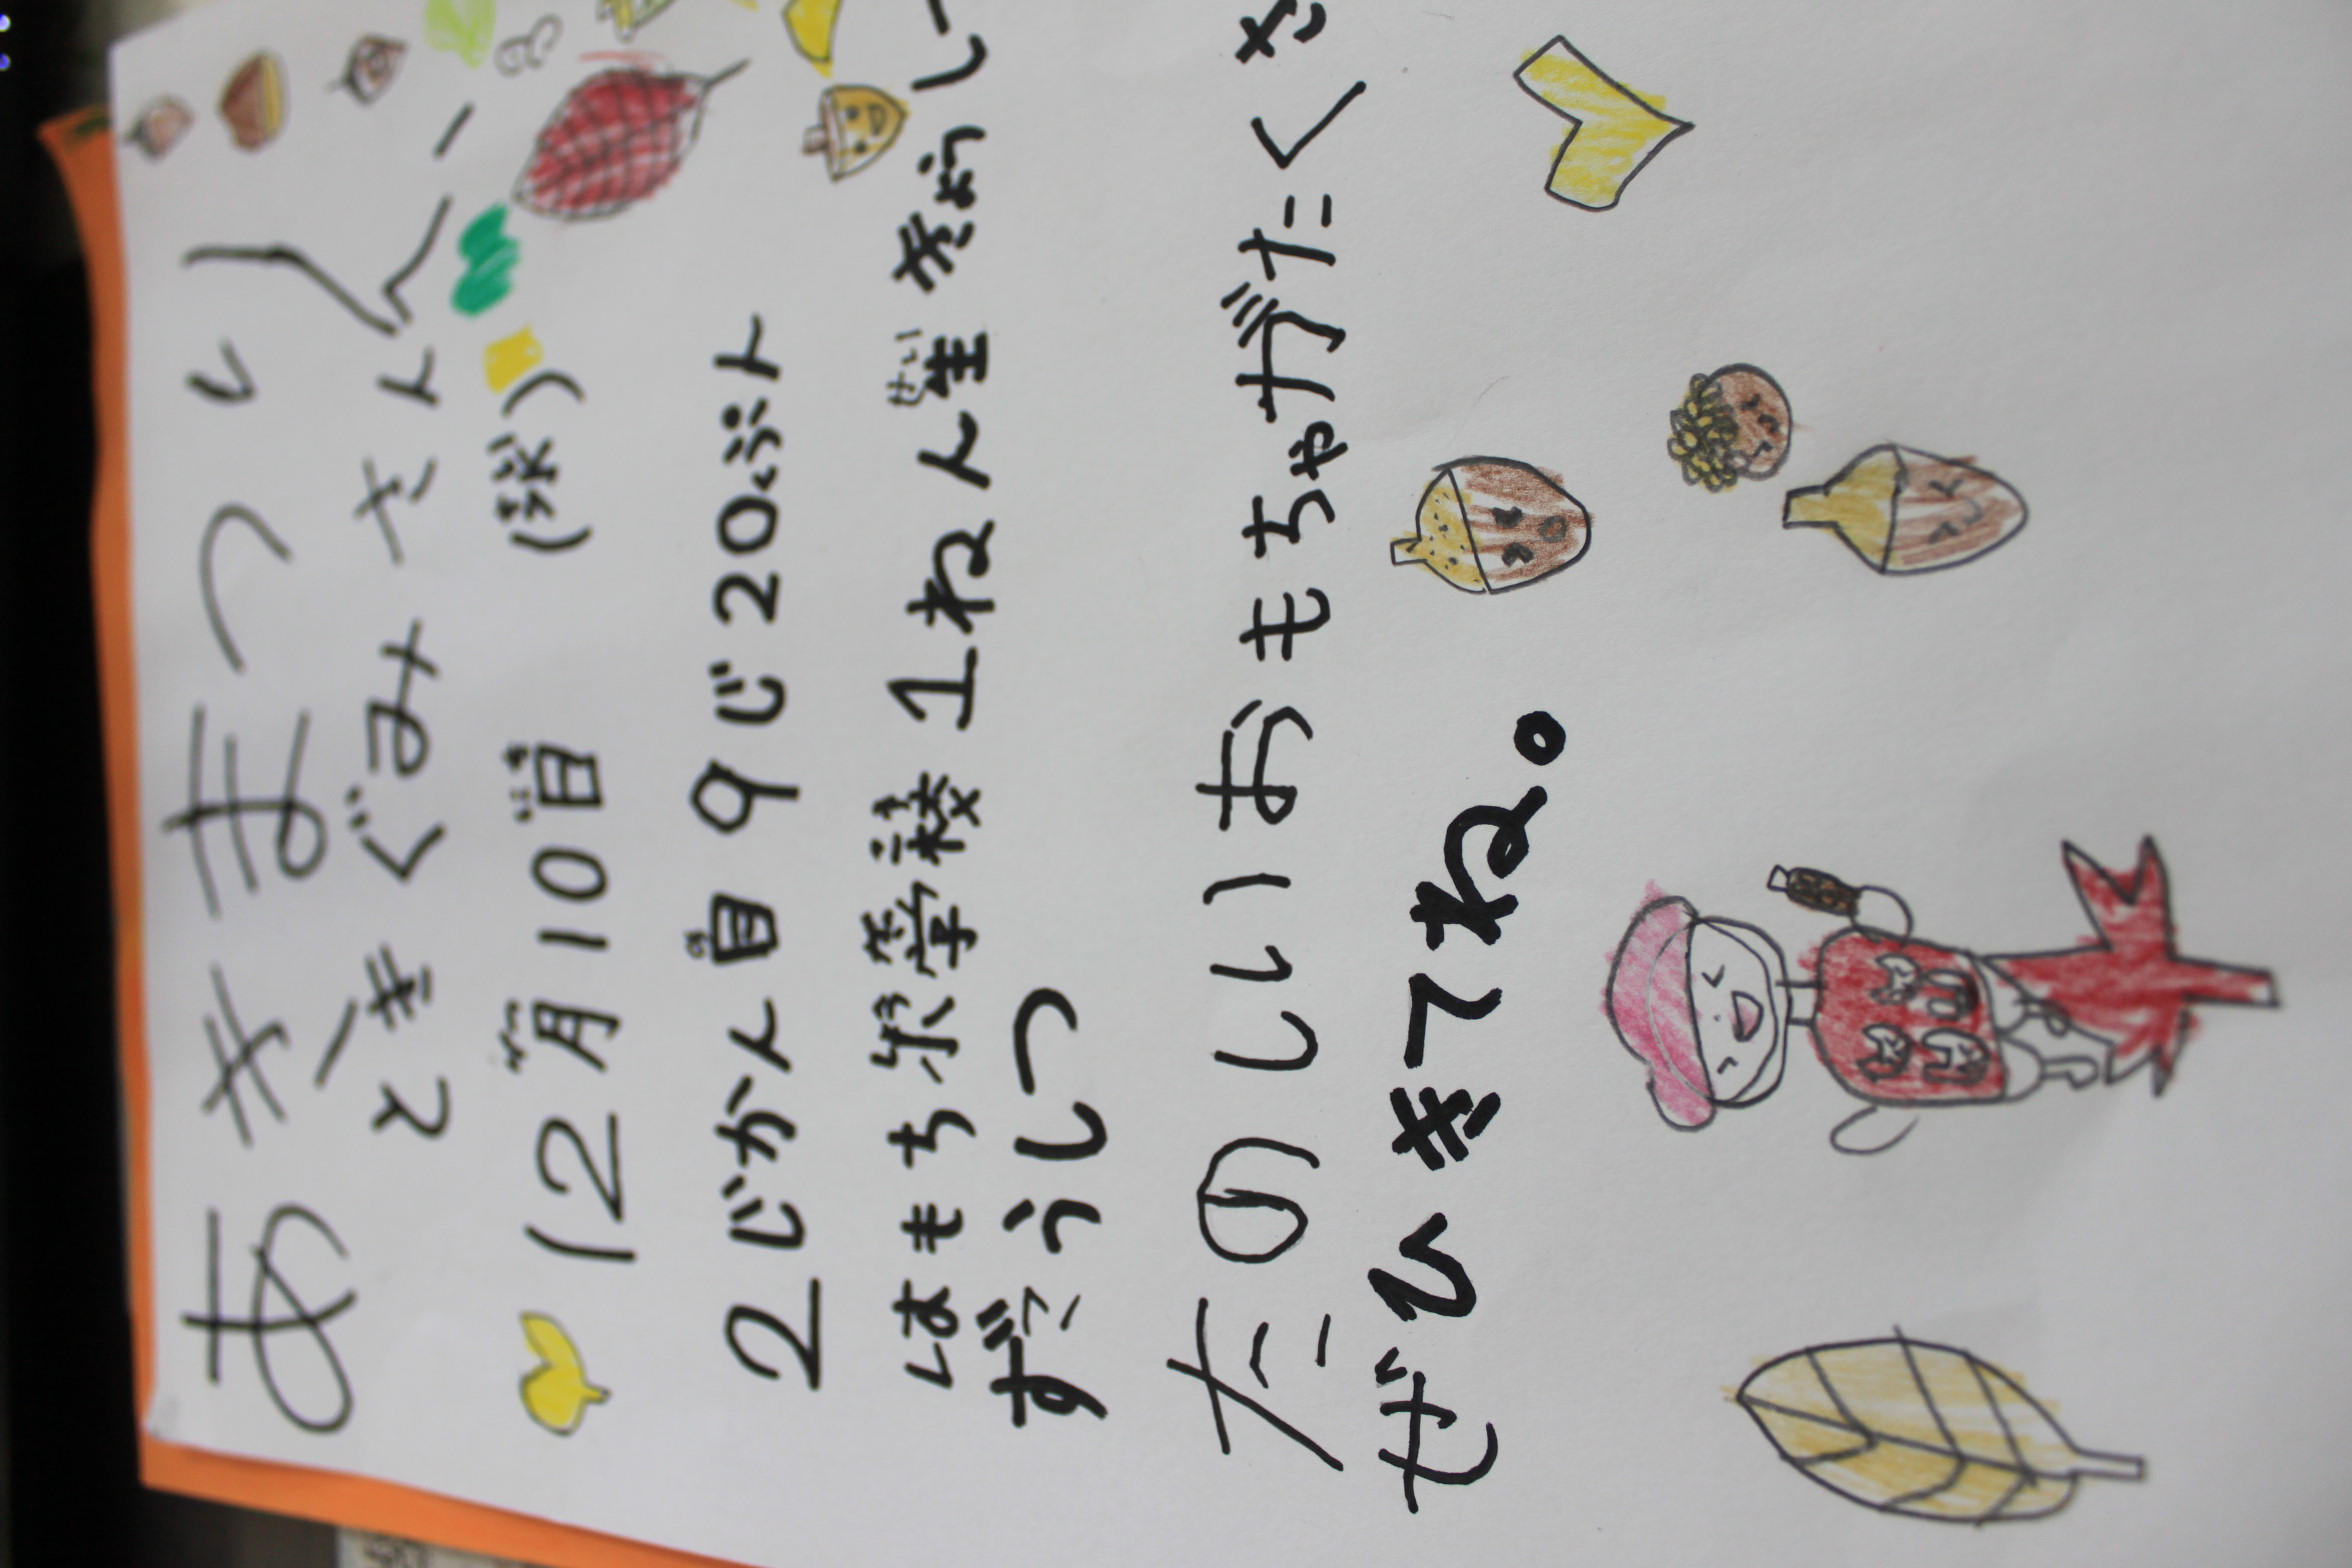 あきまつり
ときぐみさんへ
12月10日(水)
2じかん目9じ20ぷん
はもち小学校1ねん生きょうしつ
ずこうしつ
たのしいおもちゃがたくさ
ぜひきてね。